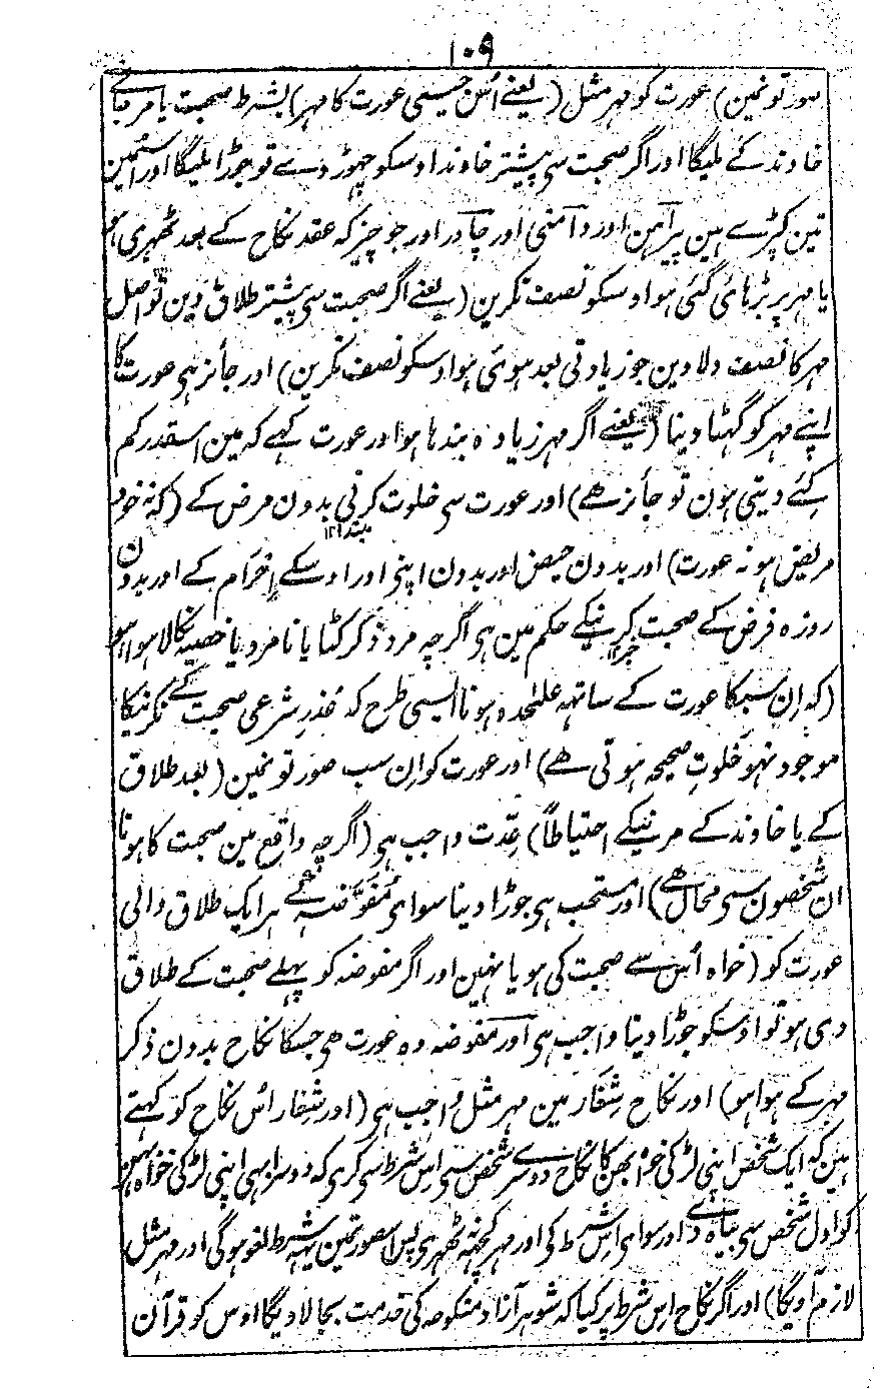 ۱۰۹
صورتونمین) عورت کو مہر مثل (یعنے اُس جیسی عورت کا مہر) بشرط صحبت یا مرجانے
خاوند کے ملیگا اور اگر صحبت سی پیشتر خاوند اوسکو چہوڑ دے تو جوڑا ملیگا اور اسمین
تین کپڑے ہین پیراہن اور دامنی اور چادر اور جو چیز کہ عقد نکاح کے بعد ٹہری ہو
یا مہر پر بڑہائی گئی ہو اوسکو نصف نکرین (یعنے اگر صحبت سی پیشتر طلاق دین تو اصل
مہر کا نصف دلا دین جو زیادتی بعد ہوئی ہو اوسکو نصف نکرین) اور جائز ہی عورت کا
اپنے مہر کو گہٹا دینا (یعنے اگر مہر زیادہ بندہا ہو اور عورت کہے کہ مین اسقدر کم
کئے دیتی ہون تو جائز ھے) اور عورت سی خلوت کرنی بدون مرض کے (کہ نہ خود
مریض ہو نہ عورت) اور بدون حیض اور بدون اپنی اور اوسکے اِحرام کے اور بدون
روزہ فرض کے صحبت کرنیکے حکم مین ہی اگرچہ مرد ذکر کٹا یا نامرد یا خصیہ نکالا ہوا ہو
(کہ اِن سبکا عورت کے ساتہہ علٰحدہ ہونا ایسی طرح کہ عُذرِ شرعی صحبت کے نکرنیکا
موجود نہو خلوتِ صحیحہ ہوتی ھے) اور عورت کو اِن سب صورتونمین (بعد طلاق
کے یا خاوند کے مرنیکے احتیاطاً) عِدّت واجب ہی (اگرچہ واقع مین صحبت کا ہونا
ان شخصون سی محال ھے) اور مستحب ہی جوڑا دینا سوای مُفَوَّضہ کے ہر ایک طلاق والی
عورت کو (خواہ اُس سے صحبت کی ہو یا نہین اور اگر مفوضہ کو پہلے صحبت کے طلاق
دی ہو تو اوسکو جوڑا دینا واجب ہی اور مفوضہ وہ عورت ھی جسکا نکاح بدون ذکر
مہر کے ہوا ہو) اور نکاح شِغار مین مہر مثل واجب ہی (اور شِغار اُس نکاح کو کہتے
ہین کہ ایک شخص اپنی لڑکی خواہ بہن کا نکاح دوسرے شخص سی اِس شرط سی کری کہ دوسرا بہی اپنی لڑکی خواہ بہن
کو اول شخص سی بیاہ دے اور سوای اِس شرط کی اور مہر کچہہ نہ ٹہری پس اسصورتمین یہہ شرط لغو ہوگی اور مہر مثل
لازم آویگا) اور اگر نکاح اِس شرط پر کیا کہ شوہر آزاد منکوحہ کی خدمت بجا لاویگا اوس کو قرآن